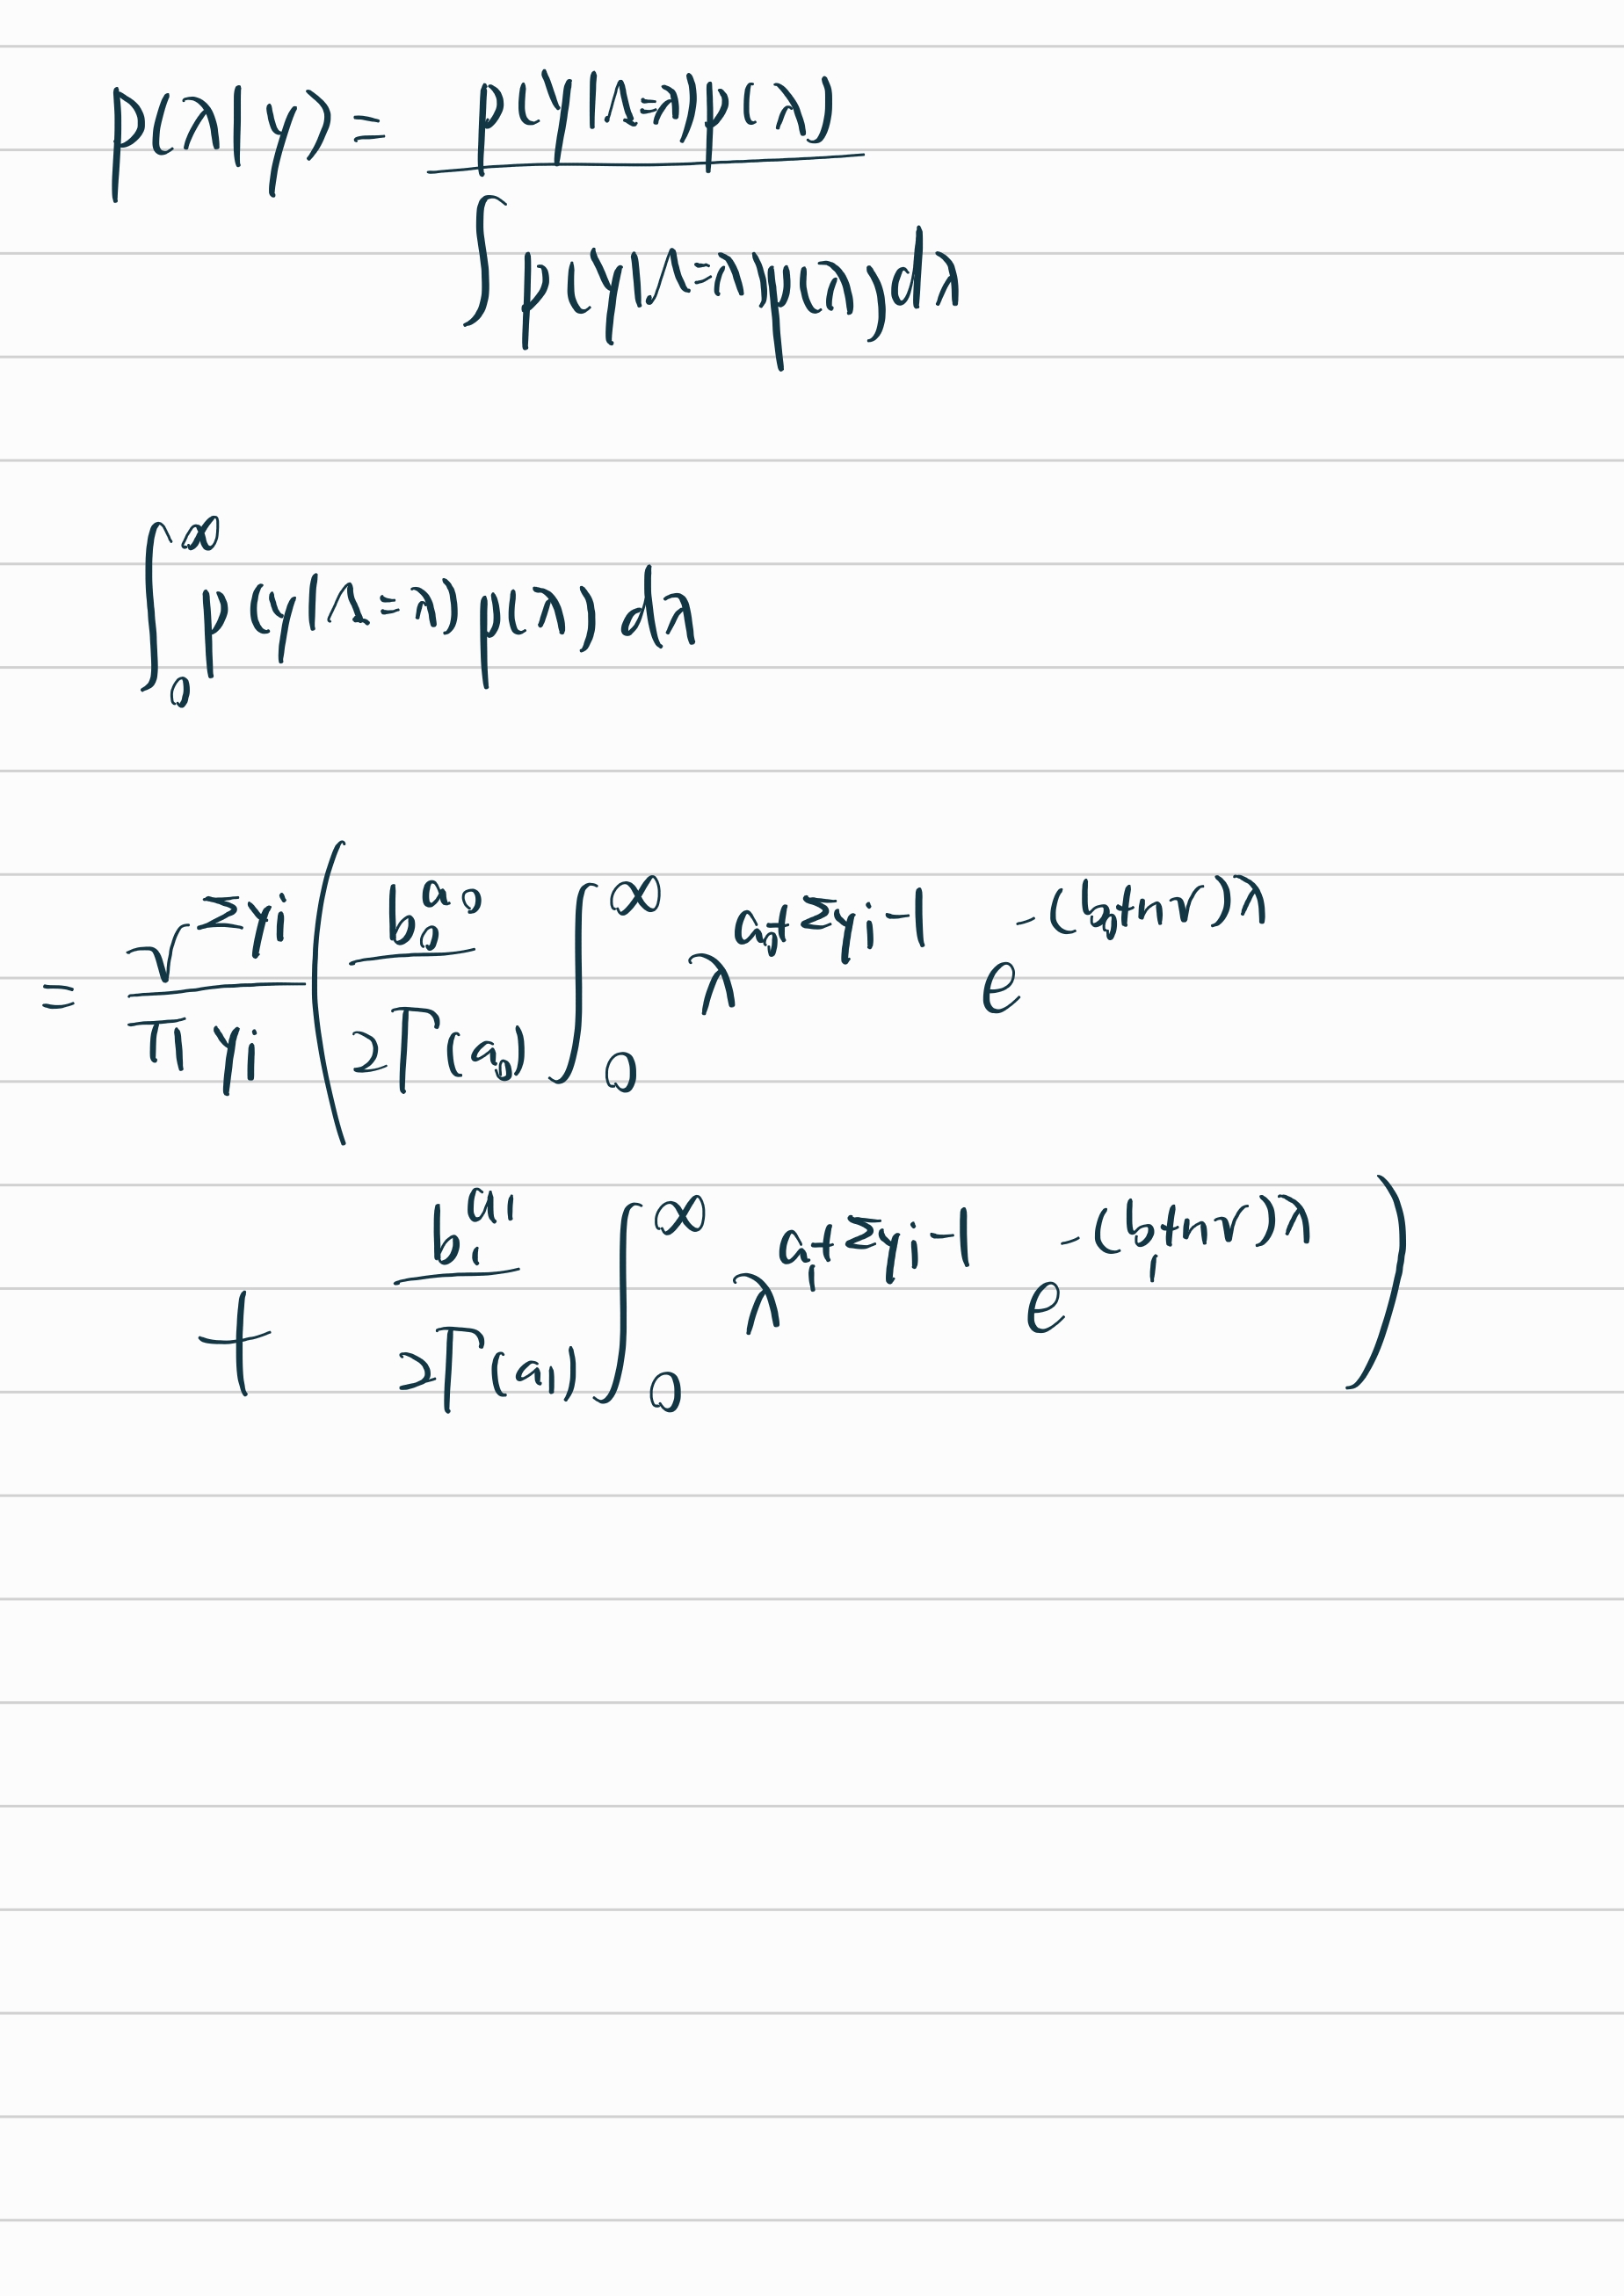 p(λ|y) = p(y|Λ=λ)p(λ) / ∫ p(y|Λ=λ)p(λ)dλ
∫₀^∞ p(y|Λ=λ) p(λ) dλ
= v^{Σyi} / Πyi ( b₀^{a₀} / 2Γ(a₀) ∫₀^∞ λ^{a₀+Σyi-1} e^{-(b₀+nv)λ}
+ b₁^{a₁} / 2Γ(a₁) ∫₀^∞ λ^{a₁+Σyi-1} e^{-(b₁+nv)λ} )